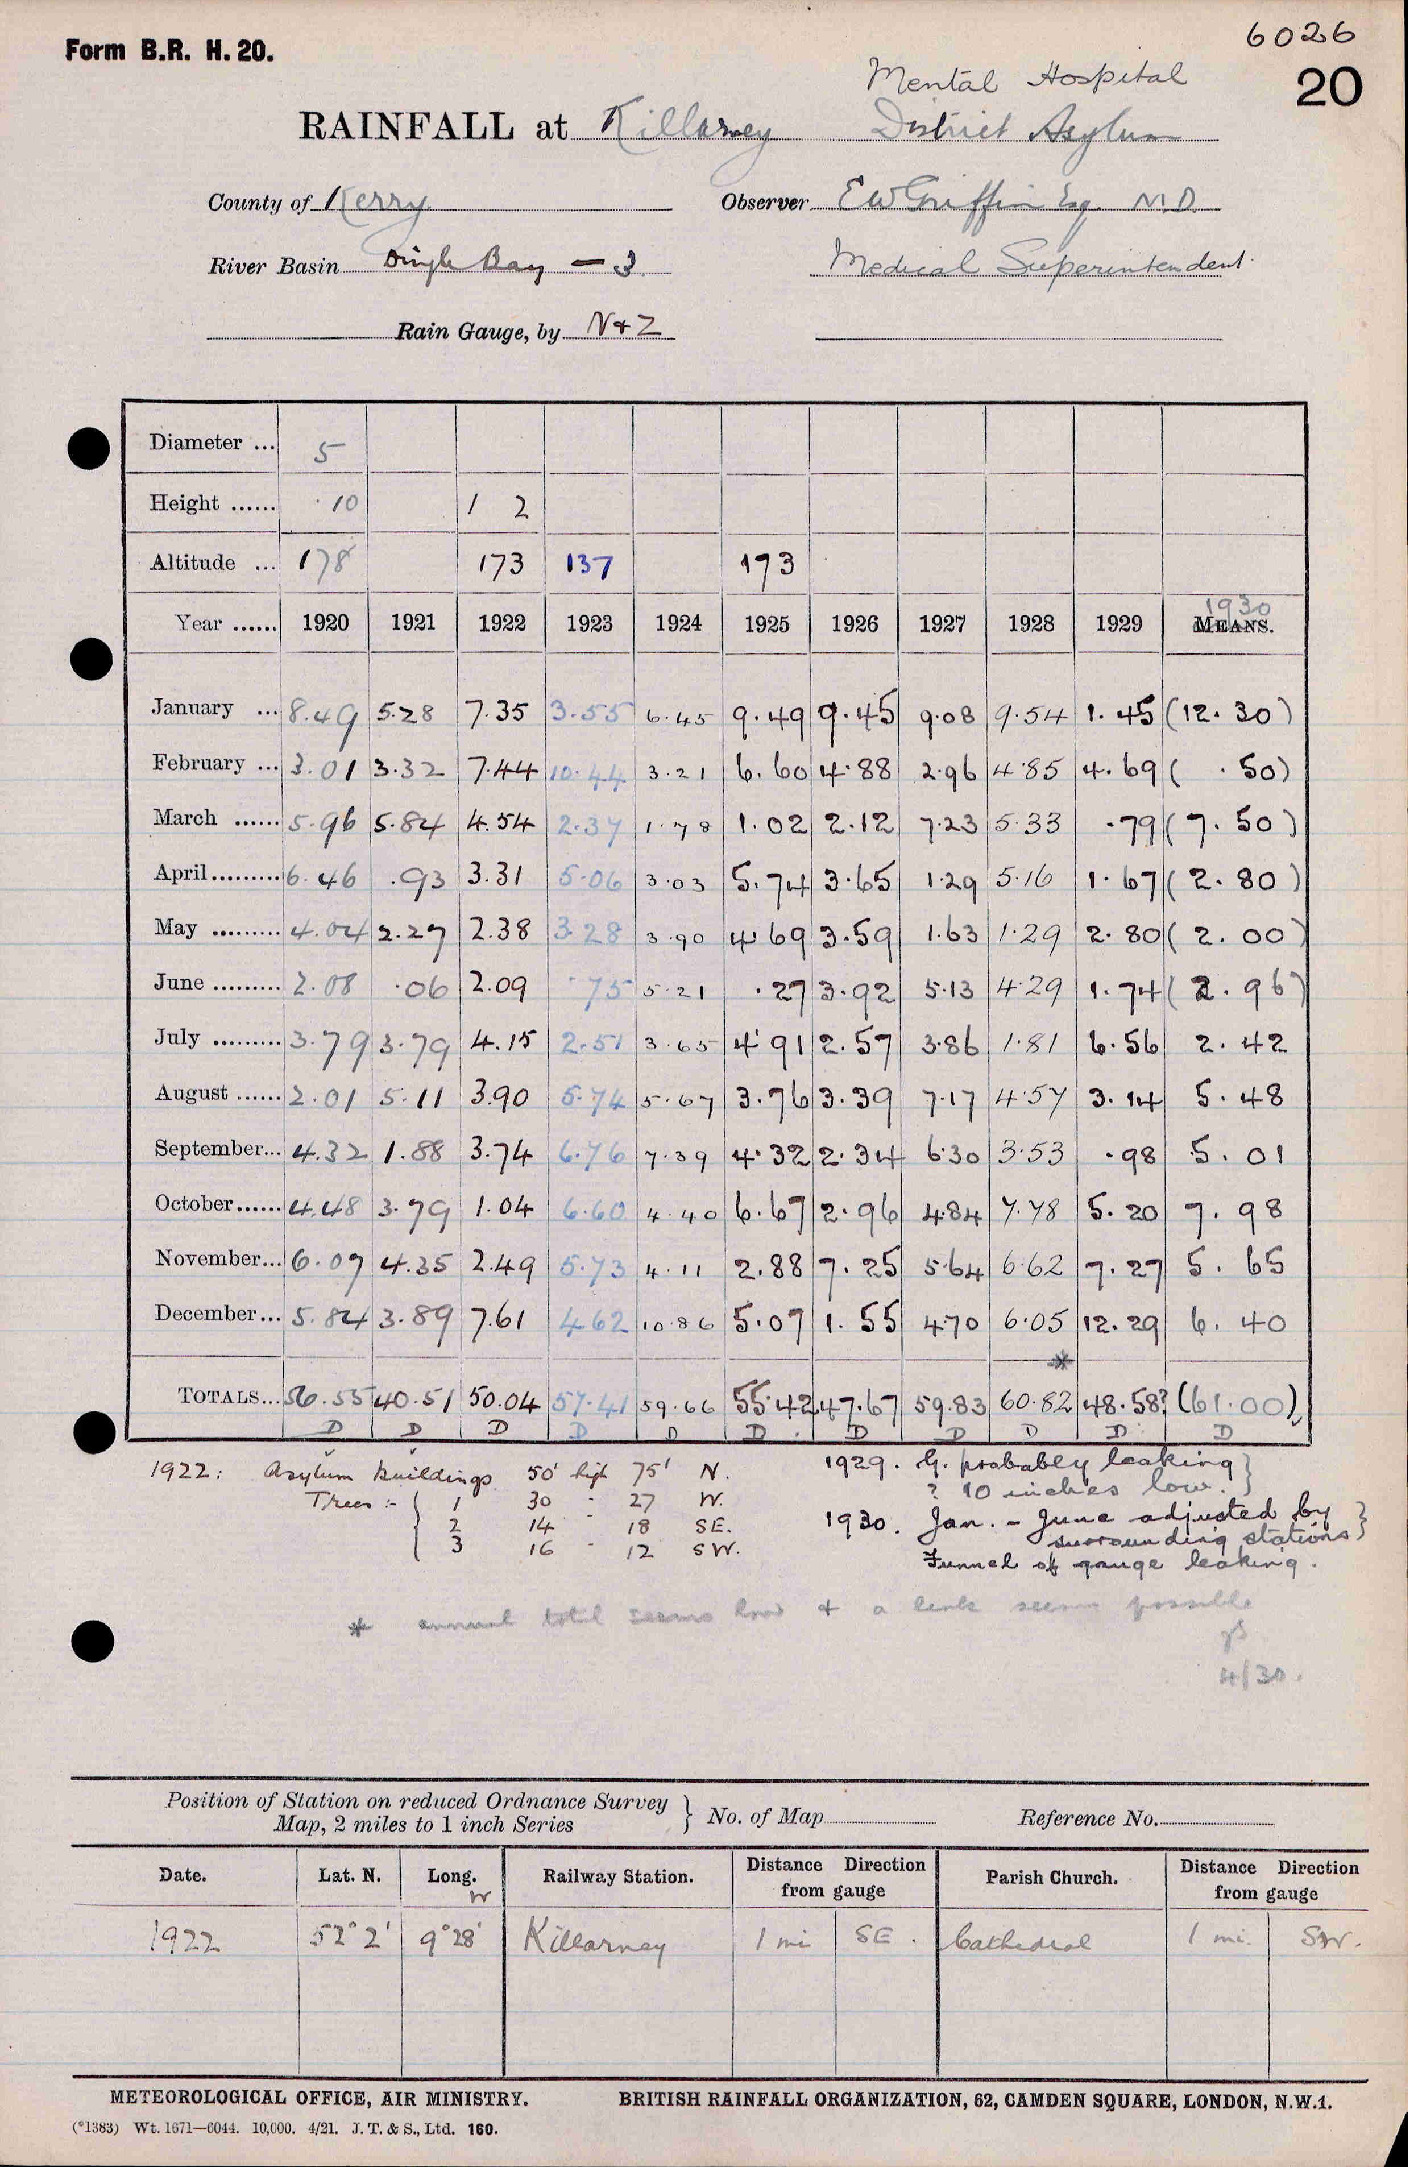 Form B.R. H. 20.
6026
20
Mental Hospital
RAINFALL at Killarney District Asylum
County of Kerry Observer E W Griffin Esq M.D.
River Basin Dingle Bay — 3. Medical Superintendent.
Rain Gauge, by N & Z
Diameter ... 5
Height ...... ·10 1 2
Altitude ... 178 173 137 173
Year ...... 1920 1921 1922 1923 1924 1925 1926 1927 1928 1929 1930 MEANS.
January ... 8.49 5.28 7.35 3.55 6.45 9.49 9.45 9.08 9.54 1.45 (12.30)
February ... 3.01 3.32 7.44 10.44 3.21 6.60 4.88 2.96 4.85 4.69 ( .50)
March ...... 5.96 5.84 4.54 2.37 1.78 1.02 2.12 7.23 5.33 .79 (7.50)
April ......... 6.46 .93 3.31 5.06 3.03 5.74 3.65 1.29 5.16 1.67 (2.80)
May ......... 4.04 2.27 2.38 3.28 3.90 4.69 3.59 1.63 1.29 2.80 (2.00)
June ......... 2.08 .06 2.09 .75 5.21 .27 3.92 5.13 4.29 1.74 (2.96)
July ......... 3.79 3.79 4.15 2.51 3.65 4.91 2.57 3.86 1.81 6.56 2.42
August ...... 2.01 5.11 3.90 5.74 5.67 3.76 3.39 7.17 4.57 3.14 5.48
September... 4.32 1.88 3.74 6.76 7.39 4.32 2.34 6.30 3.53 .98 5.01
October...... 4.48 3.79 1.04 6.60 4.40 6.67 2.96 4.84 7.78 5.20 7.98
November... 6.07 4.35 2.49 5.73 4.11 2.88 7.25 5.64 6.62 7.27 5.65
December... 5.84 3.89 7.61 4.62 10.86 5.07 1.55 4.70 6.05 12.29 6.40
*
TOTALS... 56.55 40.51 50.04 57.41 59.66 55.42 47.67 59.83 60.82 48.58? (61.00)
D D D D D D D D D D D
1922: Asylum buildings 50' high 75' N. 1929. G. probably leaking }
Trees :- { 1 30 " 27 W. ? 10 inches low. }
2 14 " 18 SE. 1930. Jan. - June adjusted by }
3 16 " 12 SW. surrounding stations }
Funnel of gauge leaking.
* annual total seems low & a leak seems possible
4/30.
Position of Station on reduced Ordnance Survey } No. of Map Reference No.
Map, 2 miles to 1 inch Series
Date. Lat. N. Long. W Railway Station. Distance Direction from gauge Parish Church. Distance Direction from gauge
1922 52° 2' 9° 28' Killarney 1 mi SE. Cathedral 1 mi. SW.
METEOROLOGICAL OFFICE, AIR MINISTRY. BRITISH RAINFALL ORGANIZATION, 62, CAMDEN SQUARE, LONDON, N.W.1.
(*1383) Wt. 1671—6044. 10,000. 4/21. J. T. & S., Ltd. 160.